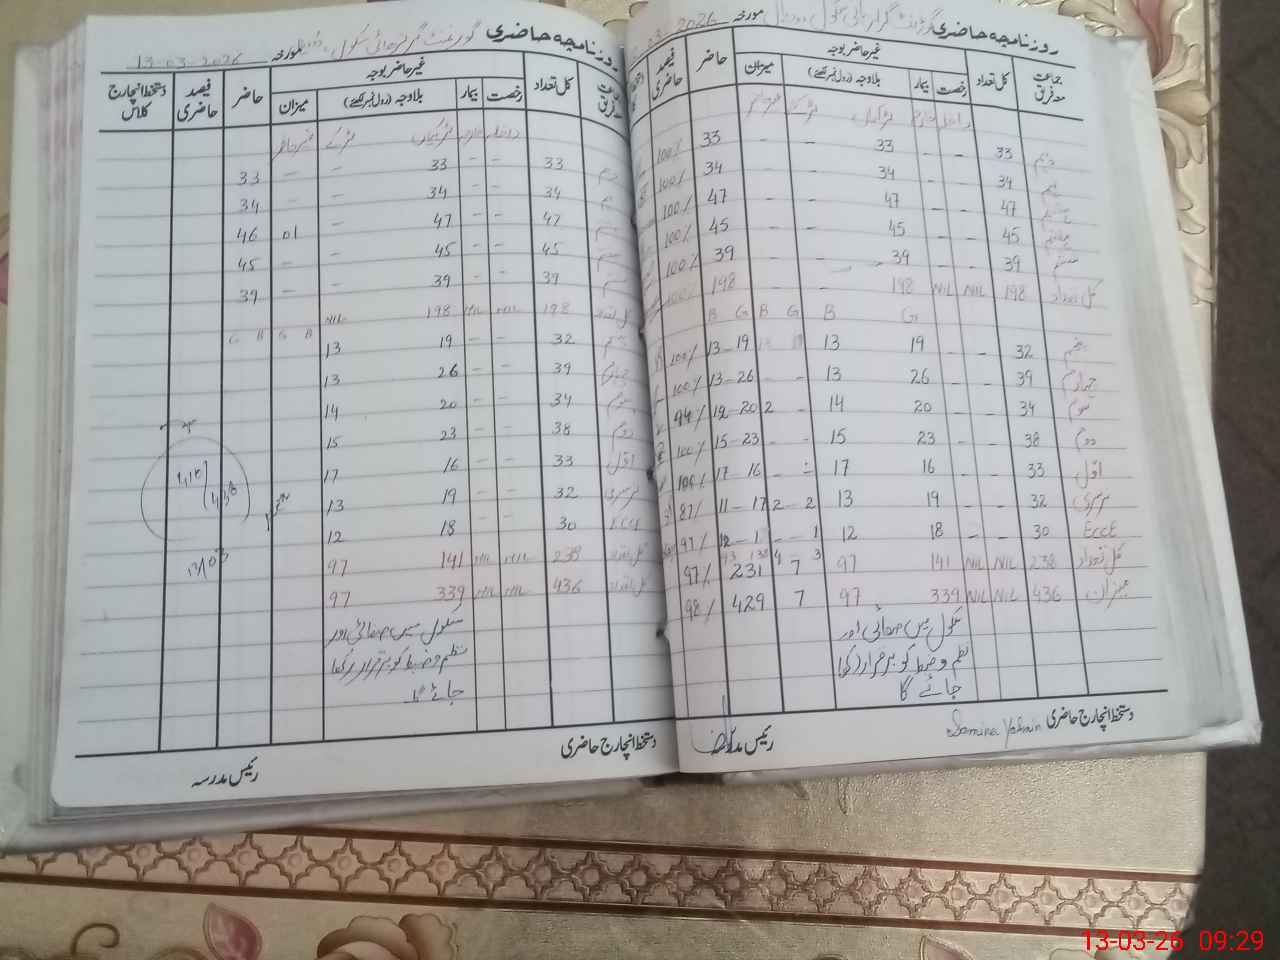 روزنامچہ حاضری گورنمنٹ گرلز ہائی سکول مورخہ 2026
جماعت معہ فریق کل تعداد غیر حاضر بوجہ حاضر فیصد حاضری
رخصت بیمار بلاوجہ (رول نمبر لکھئے) میزان
دہم 33 - - 33 - - 33 100%
نہم 34 - - 34 - - 34 100%
ہشتم 47 - - 47 - - 47 100%
ہفتم 45 - - 45 - - 45 100%
ششم 39 - - 39 39 100%
کل تعداد 198 NIL NIL 198 - - 198 100%
G B G B G B
پنجم 32 - - 19 13 13-19 100%
چہارم 39 - - 26 13 - - 13-26 100%
سوم 34 - - 20 14 - 2 12-20 94%
دوم 38 - - 23 15 - - 15-23 100%
اول 33 - - 16 17 - 17-16 100%
نرسری 32 - - 19 13 2-2 11-17 87%
ECCE 30 - - 18 12 1 - 97%
کل تعداد 238 NIL NIL 141 97 3 7 4 231 97%
میزان 436 NIL NIL 339 97 7 429 98%
سکول میں صفائی اور
نظم و ضبط کو برقرار رکھا
جائے گا
دستخط انچارج حاضری Samina Yasmin
رئیس مدرسہ
روزنامچہ حاضری گورنمنٹ گرلز ہائی سکول مورخہ 13-03-2026
جماعت معہ فریق کل تعداد غیر حاضر بوجہ حاضر فیصد حاضری دستخط انچارج کلاس
رخصت بیمار بلاوجہ (رول نمبر لکھئے) میزان
دہم 33 - - 33 - - 33
نہم 34 - - 34 - - 34
ہشتم 47 - - 47 - 01 46
ہفتم 45 - - 45 - - 45
ششم 39 - - 39 - - 39
کل تعداد 198 NIL NIL 198 NIL
B G B G
پنجم 32 - - 19 13
چہارم 39 - - 26 13
سوم 34 - - 20 14
دوم 38 - - 23 15
اول 33 - - 16 17
نرسری 32 - - 19 13
ECCE 30 - - 18 12
کل تعداد 238 NIL NIL 141 97
کل تعداد 436 NIL NIL 339 97
13/03
سکول میں صفائی اور
نظم و ضبط کو برقرار رکھا
جائے گا
دستخط انچارج حاضری
رئیس مدرسہ
13-03-26 09:29